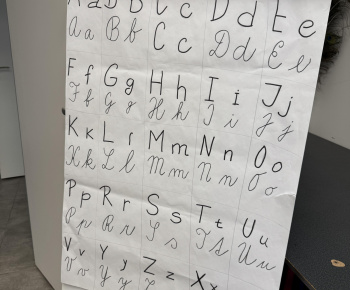 A a B b C c D d E e
A a B b C c D d E e
F f G g H h I i J j
F f G g H h I i J j
K k L l M m N n O o
K k L l M m N n O o
P p R r S s T t U u
P p R r S s T t U u
V v Y y Z z X x
V v Y y Z